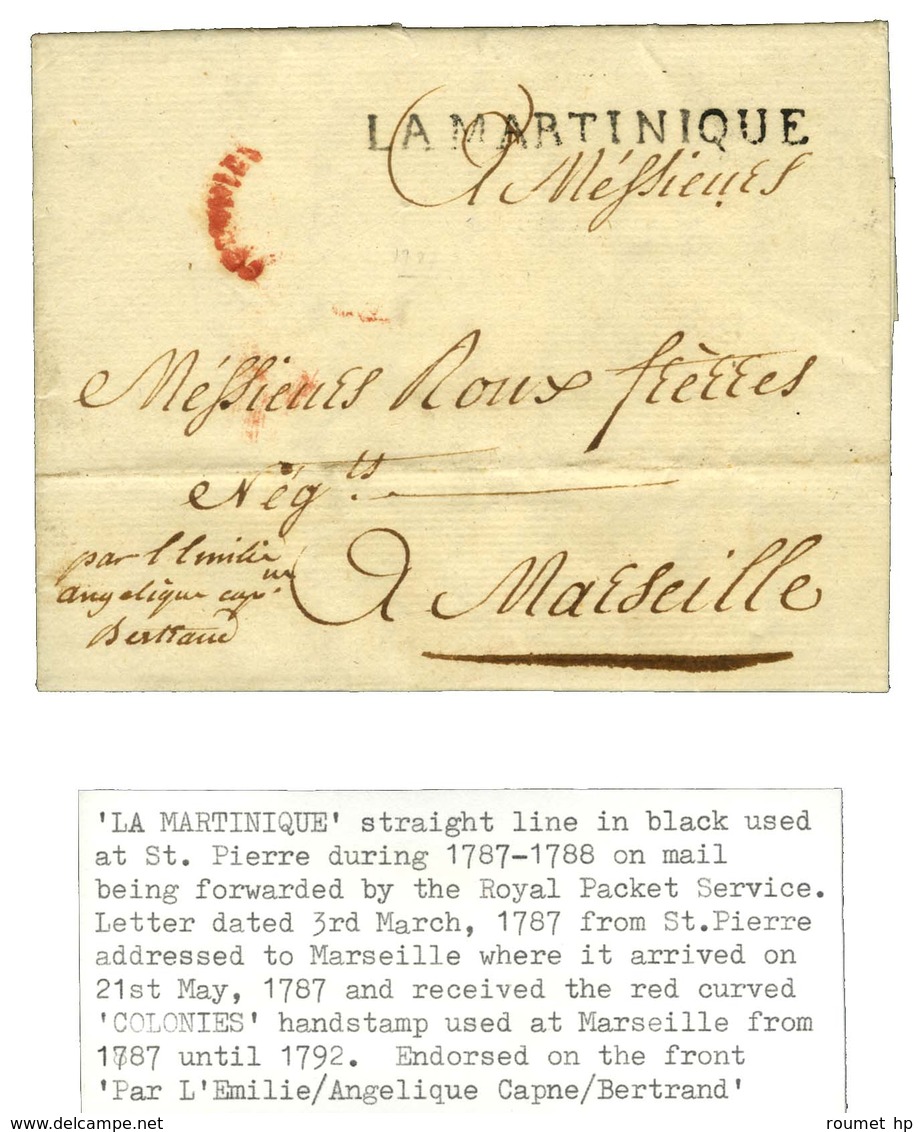 LA MARTINIQUE
A Méssieurs
Méssieurs Roux frères
Nég.ts
par l'Emilie
angelique capne
Bertrand
A Marseille
'LA MARTINIQUE' straight line in black used
at St. Pierre during 1787-1788 on mail
being forwarded by the Royal Packet Service.
Letter dated 3rd March, 1787 from St.Pierre
addressed to Marseille where it arrived on
21st May, 1787 and received the red curved
'COLONIES' handstamp used at Marseille from
1787 until 1792.  Endorsed on the front
'Par L'Emilie/Angelique Capne/Bertrand'
www.delcampe.net
roumet hp